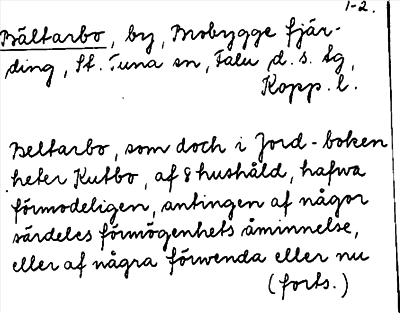 1-2.
Bältarbo, by, Brobygge fjär-
ding, St. Tuna sn, Falu d. s. tg,
Kopp. l.
Beltarbo, som doch i Jord-boken
heter Kutbo, af 8 hushåld, hafwa
förmodeligen, antingen af någor
särdeles förmögenhets åminnelse,
eller af några förwenda eller nu
(forts.)